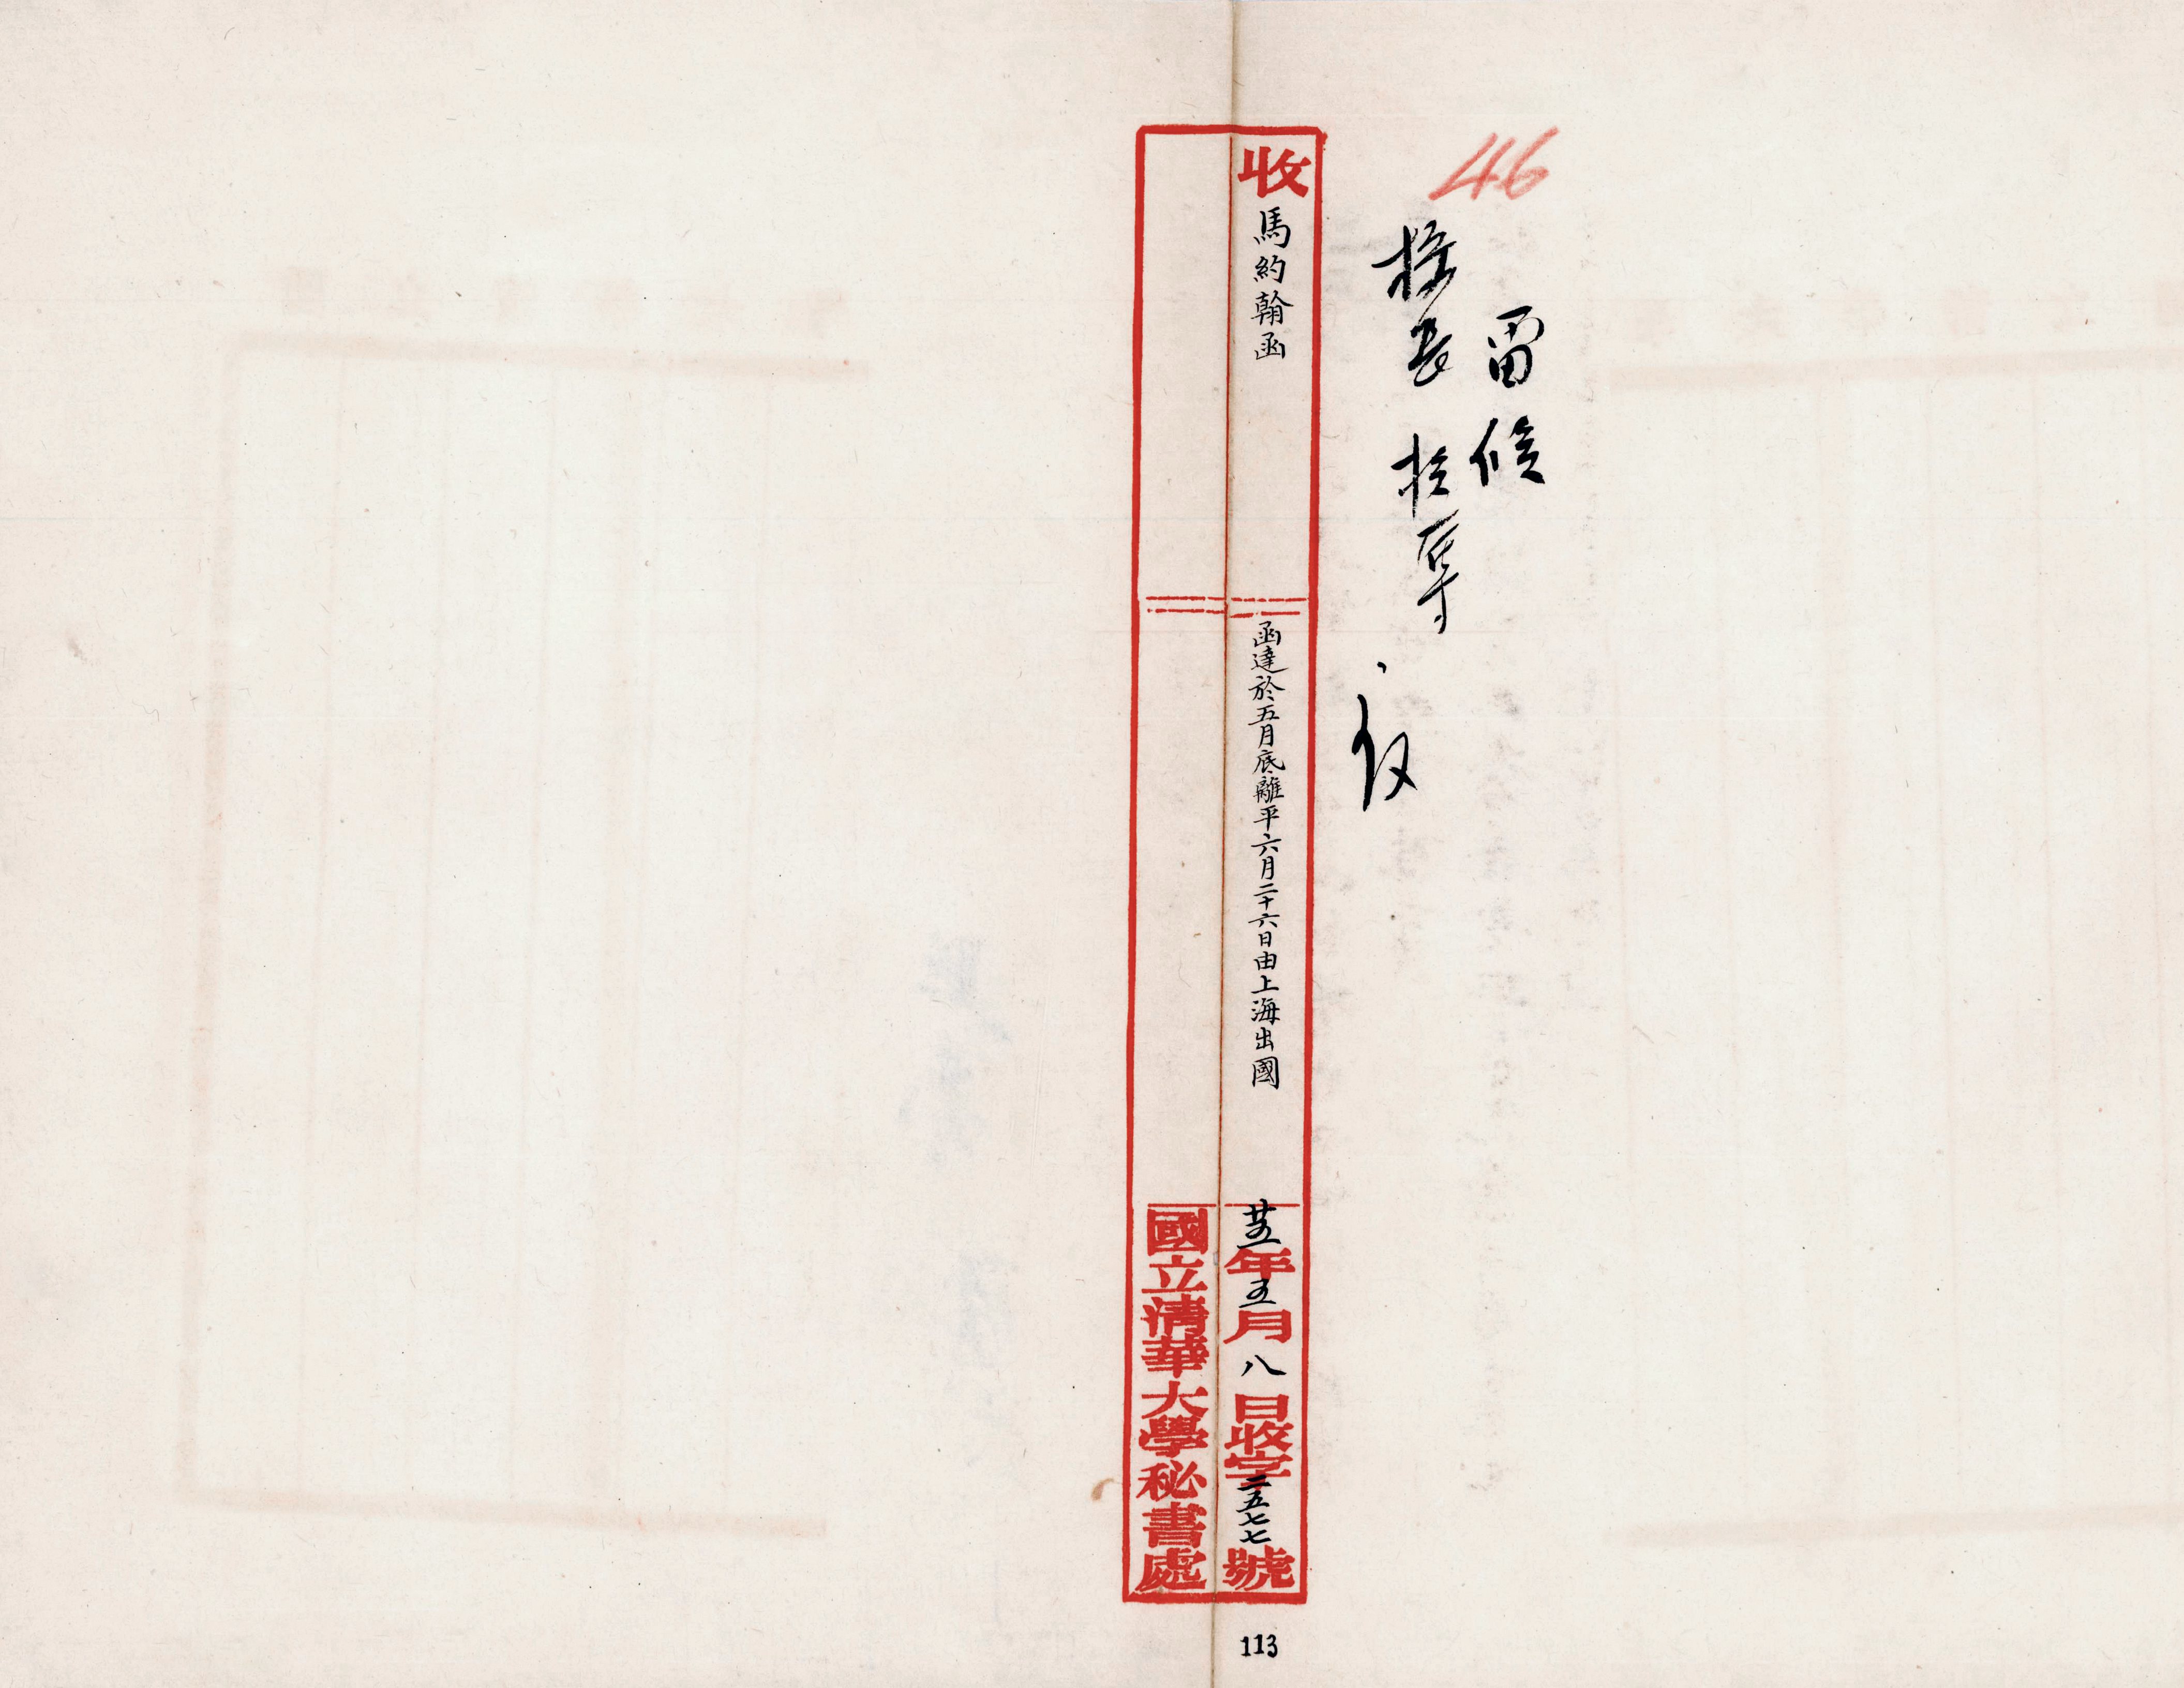 46
留候
校長核奪
收 馬約翰函
函達於五月底離平六月二十六日由上海出國
廿五年五月八日收字二五七七號
國立清華大學秘書處
113